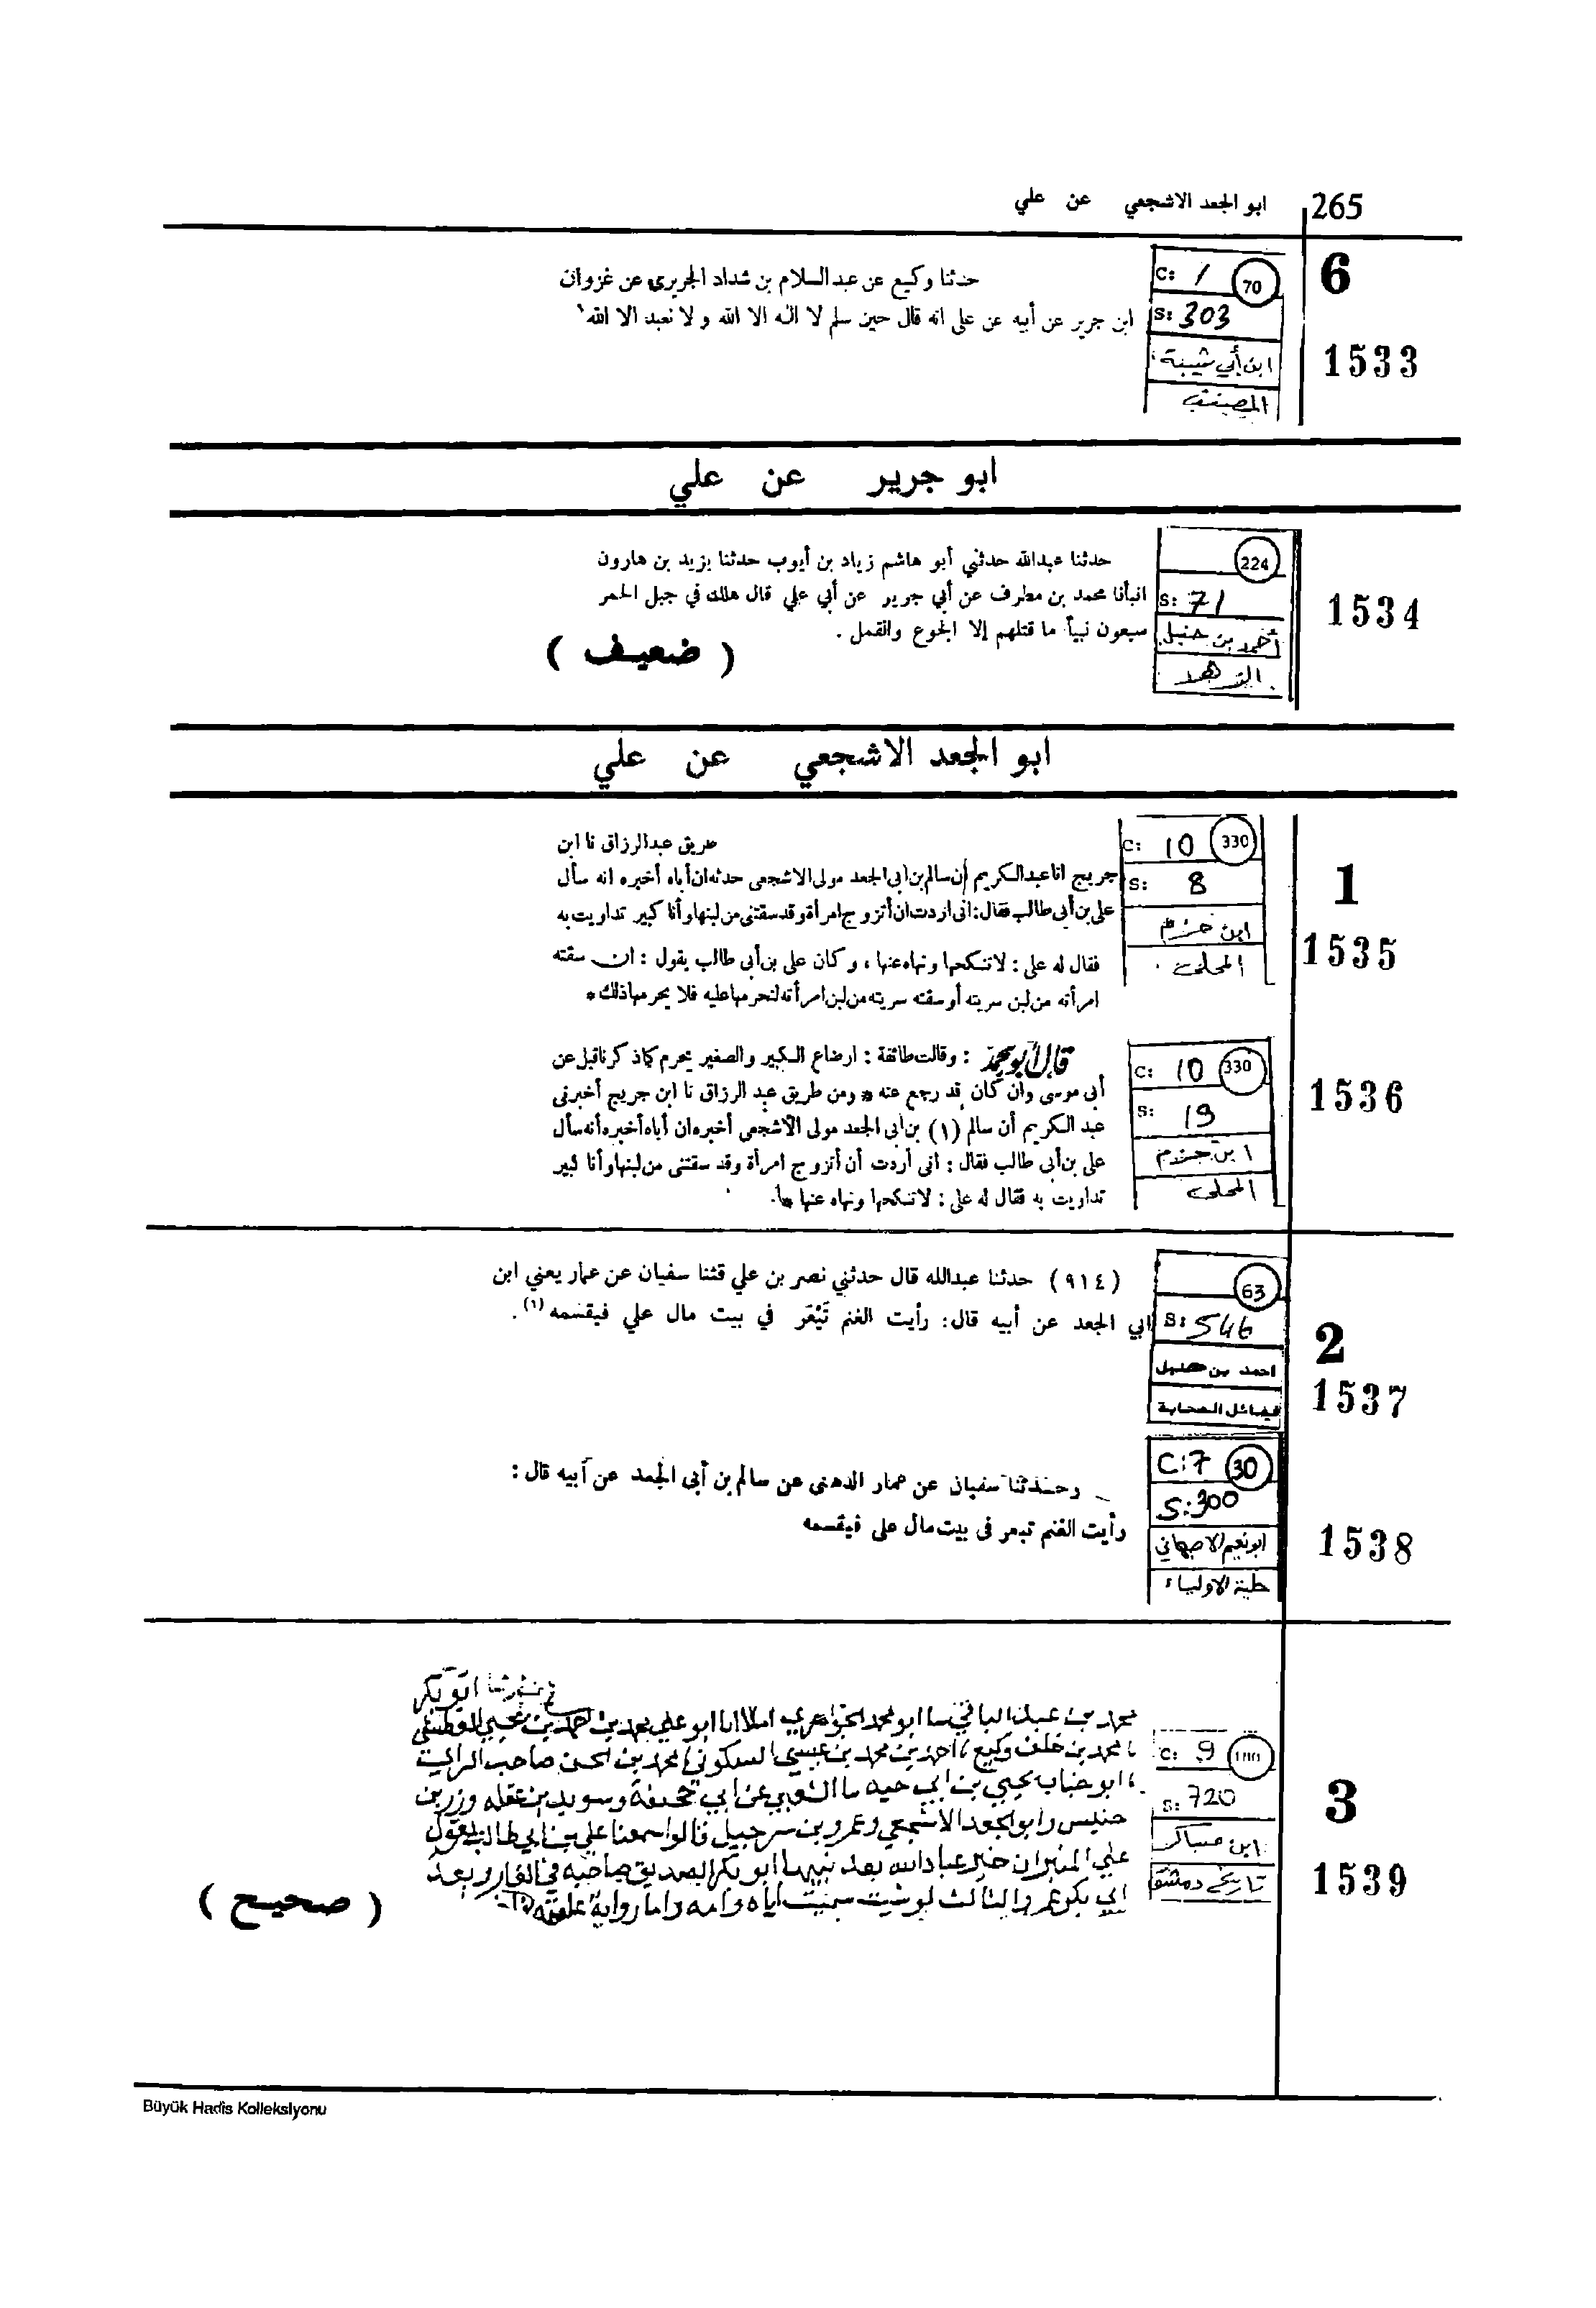 265 ابو الجعد الاشجعي عن علي
6
1533
C: 1 70
S: 303
ابن أبي شيبة
المصنف
حدثنا وكيع عن عبد السلام بن شداد الجريري عن غزوان
ابن جرير عن أبيه عن علي انه قال حين سلم لا اله الا الله و لا نعبد الا الله
ابو جرير عن علي
1534
224
S: 71
أحمد بن حنبل
الزهد
حدثنا عبدالله حدثني أبو هاشم زياد بن أيوب حدثنا يزيد بن هارون
انبأنا محمد بن مطرف عن أبي جرير عن أبي علي قال هلك في جبل الحمر
سبعون نبياً ما قتلهم إلا الجوع والقمل .
( ضعيف )
ابو الجعد الاشجعي عن علي
1
1535
C: 10 330
S: 8
ابن حزم
المحلى
طريق عبدالرزاق نا ابن
جريج انا عبد الكريم أن سالم بن أبى الجعد مولى الاشجعى حدثه ان أباه أخبره انه سأل
على بن أبى طالب فقال: انى اردت ان أتزوج امرأة وقد سقتنى من لبنها وأنا كبير تداويت به
فقال له على : لا تنكحها ونهاه عنها ، وكان على بن أبى طالب يقول : ان سقته
امرأته من لبن سريته أو سقته سريته من لبن امرأته لتحرمها عليه فلا يحرمها ذلك *
1536
C: 10 330
S: 19
ابن حزم
المحلى
قال أبو محمد : وقالت طائفة : ارضاع الكبير والصغير يحرم كما ذكرنا قبل عن
أبى موسى وان كان قد رجع عنه * ومن طريق عبد الرزاق نا ابن جريج أخبرنى
عبد الكريم أن سالم (١) بن أبى الجعد مولى الأشجعى أخبره ان أباه أخبره أنه سأل
على بن أبى طالب فقال : انى أردت أن أتزوج امرأة وقد سقتنى من لبنها وأنا كبير
تداويت به فقال له على : لا تنكحها ونهاه عنها *
2
1537
63
S: 546
احمد بن حنبل
فضائل الصحابة
(٩١٤) حدثنا عبدالله قال حدثني نصر بن علي قثنا سفيان عن عمار يعني ابن
ابي الجعد عن أبيه قال: رأيت الغنم تَيْعَر في بيت مال علي فيقسمه (١).
1538
C: 7 30
S: 300
ابو نعيم الاصبهاني
حلية الاولياء
وحدثنا سفيان عن عمار الدهنى عن سالم بن أبى الجعد عن أبيه قال :
رأيت الغنم تبعر فى بيت مال على فيقسمه
3
1539
C: 9
S: 720
ابن عساكر
تاريخ دمشق
ابو بكر
محمد بن عبد الباقي ابو محمد الجوهري املا انا ابو علي بن يحيى
محمد بن خلف وكيع احمد بن محمد بن عيسى السكوني محمد بن الحسن صاحب الراي
ابو جناب يحيى بن ابي حيه الشعبي عن ابي جحيفة وسويد بن غفله وزر بن
حبيش وابو الجعد الاشجعي وعمرو بن شرحبيل قالوا سمعنا علي بن ابي طالب يقول
علي المنبر ان خير عباد الله بعد نبيها ابو بكر الصديق صاحبه في الغار وبعد
ابي بكر عمر والثالث لو شيت سميت اياه واما رواية علقمة
( صحيح )
Büyük Hadis Kolleksiyonu